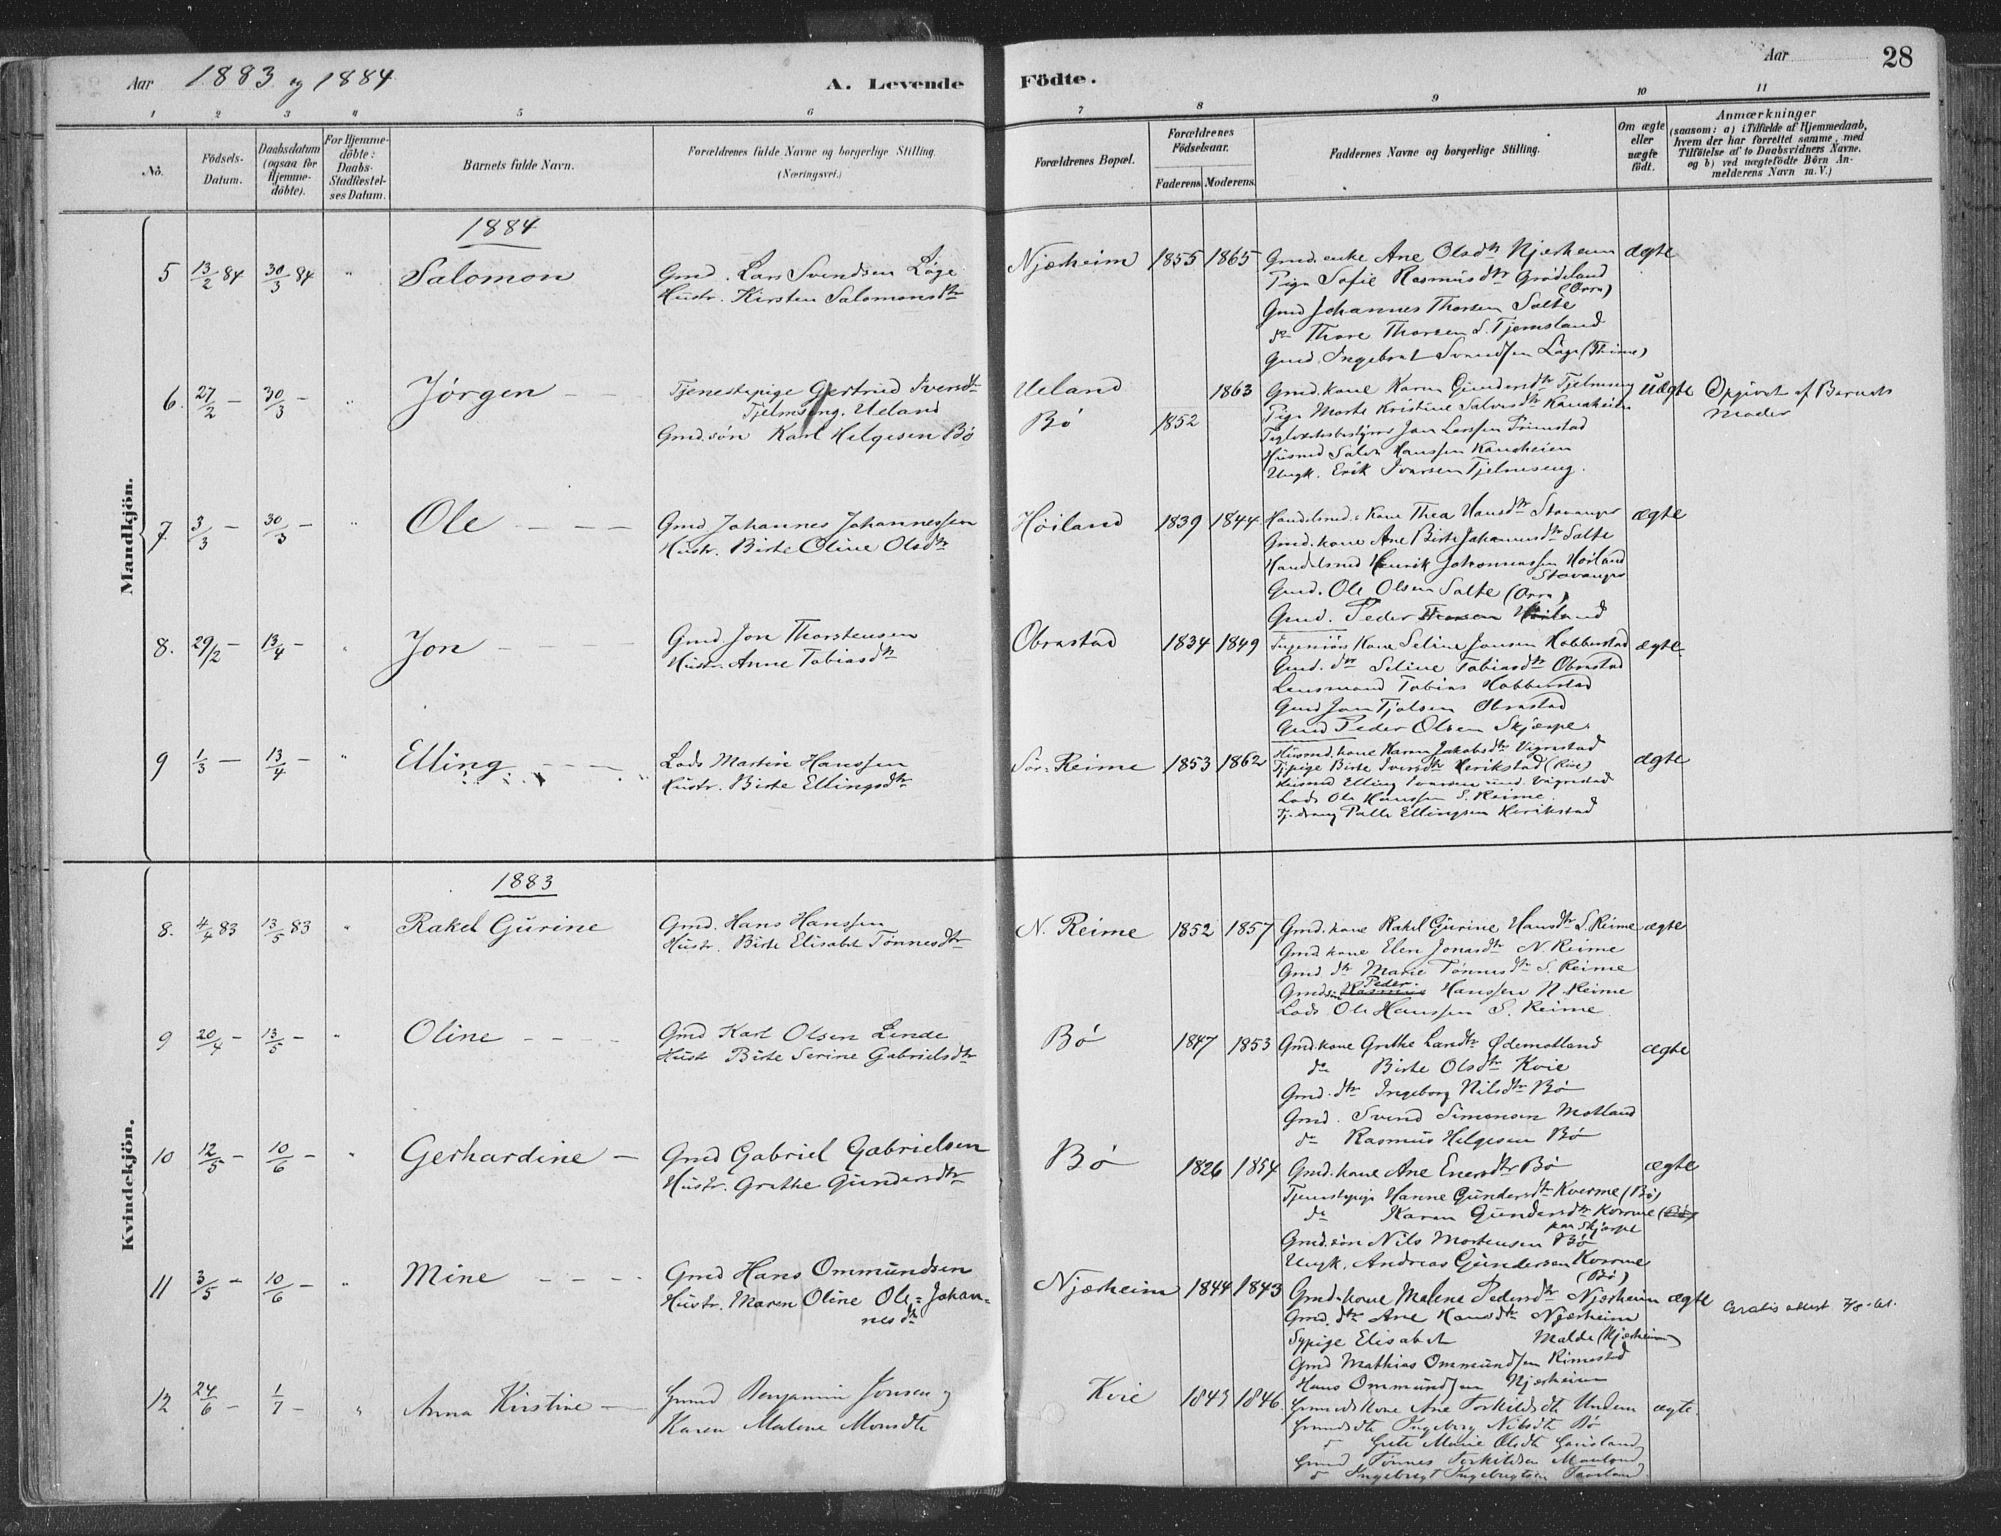 Aar 1883 og 1884
A. Levende Fødte.
Aar
28
1 2 3 4 5 6 7 8 9 10 11
No.
Fødsels-Datum.
Daabsdatum (ogsaa for Hjemmedøbte).
For Hjemmedøbte: Daabs-Stadfæstelses Datum.
Barnets fulde Navn.
Forældrenes fulde Navne og borgerlige Stilling. (Næringsvei.)
Forældrenes Bopæl.
Forældrenes Fødselsaar.
Faderens
Moderens
Faddernes Navne og borgerlige Stilling.
Om ægte eller uægte født.
Anmærkninger
(saasom: a) i Tilfælde af Hjemmedaab, hvem der har forrettet samme, med Tilføielse af to Daabsvidners Navne. og b) ved uægtefødte Børn Anmelderens Navn m. V.)
Mandkjøn.
1884
5 13/2 84 30/3 84 " Salomon
Gmd. Lars Svendsen Löge
Hustr. Kirsten Salomonsdtr
Njærheim 1855 1865
Gmd. enke Ane Olsdtr Njærheim ægte
Pige Sofie Rasmusdtr Grødeland
(Orre)
Gmd Johannes Thorsen Salte
do Thore Thorsen S. Tjemsland
Gmd. Ingebret Svendsen Löge (Thime)
6. 27/2 – 30/3 – " Jörgen
Tjenestepige Gertrud Iversdtr
Tjelmeng. Ueland
Gmd.søn Karl Helgesen Bø
Ueland 1863
Bø 1852
Gmd. kone Karen Gundersdtr Tjelmeng uægte Opgivet af Barnets Moder
Pige Marte Kristine Salvesdtr Kanaheien
Jan Larssen
Husmd Salve Hanssen Kanaheien
Ungk. Erik Ivarsen Tjelmeng.
7. 3/3 – 30/3 – " Ole
Gmd Johannes Johannessen
Hustr. Birte Oline Olsdtr
Høiland 1839 1844
Handelsmd.s kone Thea Hansdtr Stavanger ægte
Gmd. kone Ane Birte Johannesdtr Salte
Handelsmd Henrik Johannessen Høiland
Stavanger
Gmd. Ole Olsen Salte (Orre)
Gmd. Peder Høiland
8. 29/2 – 13/4 – " Jon
Gmd. Jon Thorstensen
Hustr. Anne Tobiasdtr
Obrestad 1834 1849
Ingeniörs Kone Seline Jonsen Hobberstad ægte.
Gmd. dtr Seline Tobiasdtr Obrestad
Lensmand Tobias Hobberstad
Gmd Jon Obrestad
Gmd Peder Olsen Skjærpe.
9 1/3 – 13/4 – " Elling
Lods Martin Hanssen
Hustr. Birte Ellingsdtr
Sör-Reime 1853 1862
Husmd. kone Karen Jakobsdtr Vigrestad ægte
Tjpige Birte Iversdtr Herikstad
Husmd Elling Ivarsen Vigrestad
Lods Ole Hanssen S. Reime.
Tj.dreng Palle Ellingsen Herikstad
Kvindekjøn.
1883
8. 4/4 83 13/5 83 " Rakel Gurine
Gmd. Hans Hanssen
Hustr. Birte Elisabet Tønnesdtr
N. Reime 1852 1857
Gmd. kone Rakel Gurine Hansdtr S. Reime ægte
Gmd kone Elen Jonasdtr N. Reime
Gmd. dtr Marie Tønnesdtr S. Reime
Peder.
Gmdsøn Rasmus Hanssen N. Reime
Lods Ole Hanssen S. Reime.
9 20/4 – 13/5 – " Oline
Gmd Karl Olsen Lende
Hustr Birte Serine Gabrielsdtr
Bø 1847 1853
Gmd. kone Grethe Larsdtr Ødemotland ægte
do Birte Olsdtr Kvie
Gmd. dtr Ingeborg Nilsdtr Bø
Gmd. Svend Simonsen Motland
do Rasmus Helgesen Bø
10 12/5 – 10/6 – " Gerhardine
Gmd Gabriel Gabrielsen
Hustr. Grethe Gundersdtr
Bø 1826 1854
Gmd. kone Ane Enersdtr Bø ægte
Tjenestepige Hanne Gundersdtr Kverme (Bø)
do Karen Gundersdtr Kverme (Bø)
Skjærpe
Gmd. søn Nils Mortensen Bø
Ungk. Andreas Gundersen Kverme
(Bø)
11 3/5 – 10/6 – " Mine
Gmd Hans Ommundsen
Hustr. Maren Oline Ole=Johan=
nesdtr
Njærheim 1844 1843
Gmd. kone Malene Pedersdtr Njærheim ægte Gratis attest
Gmd. dtr Ane Hansdtr Njærheim
Sypige Elisabet Malde (Njærheim)
Gmd Mathias Ommundsen Rimestad
Hans Ommundsen Njærheim
12 24/6 – 1/7 – " Anna Kirstine
Grmd Benjamin Jonsen og
Karen Malene Monsdtr
Kvie 1843 1846
Grmands kone Ane Torkildsdtr Undem ægte.
Grmands dtr Ingeborg Nilsdtr Bø
do Grete Marie Olsdtr
Grmd Tønnes Torkildsen
do Ingebregt Ingebregtsen